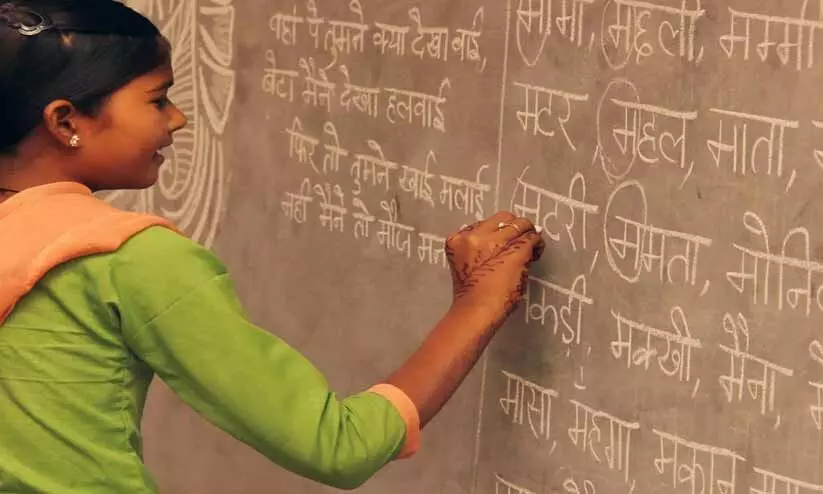 वहां पे तुमने क्या देखा बाई,
बेटा मैने देखा हलवाई
फिर तो तुमने खाई मलाई
नहीं मैने तो मौज
मामा, मछली, मम्मी
मटर महल, माता,
मटरी, ममता,
मकड़ी, मक्खी, मैना,
मासा, महंगा मकान